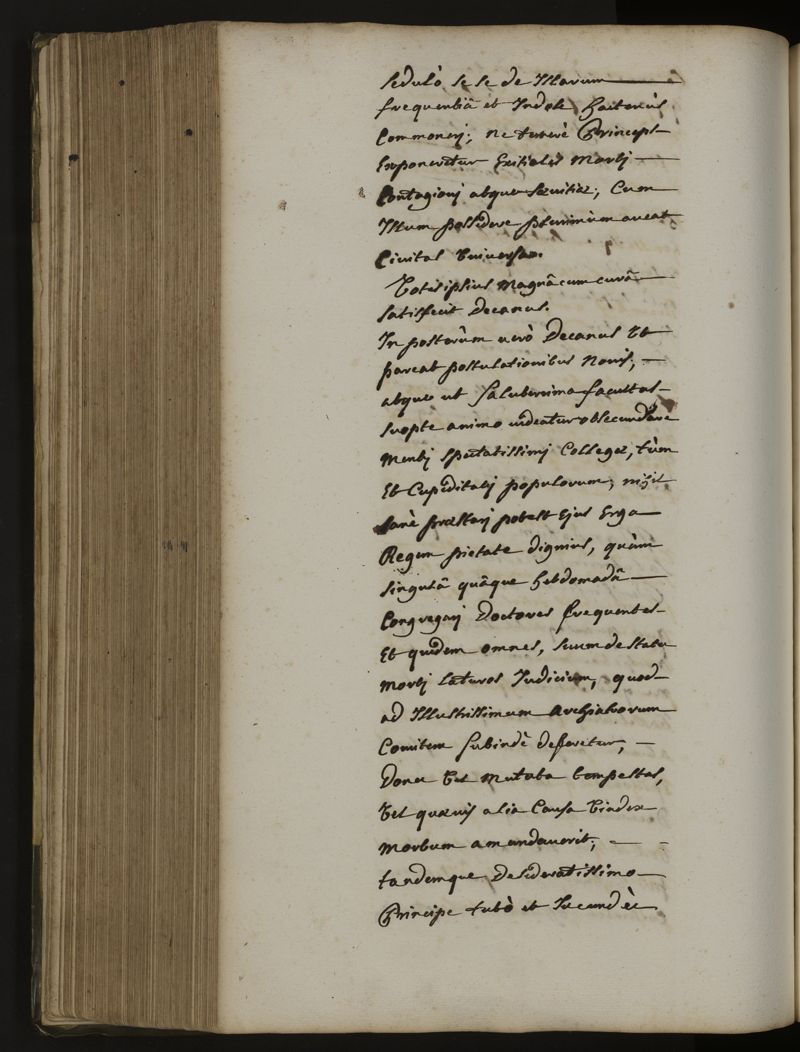 sedulò se se de Illarum
frequentiâ et Indole hactenùs
Commoneri; ne temerè Princeps
Exponeretur Exitialis Morbj
Contagionj absque sævitiæ; Cum
Illum possidere plurimùm aveat
Civitas Vniversa.
Votis ipsius Magnâ cum curâ
satisfecit Decanus.
In posterùm verò Decanus Vt
pareat postulationibus Novis;
absque ut saluberrima facultas
suopte animo videatur obsecundare
Mentj spectatissimj Collegæ, tùm
Et Cupiditatj populorum; nihil
sanè præstarj potest Ejus Erga
Regem pietate dignius, quàm
singulâ quâque hebdomadâ
Congregarj Doctores frequentes
Et quidem omnes, suum de statu
Morbj laturos Iudicium, quod
ad Illustrissimum Archiatrorum
Comitem subindè deferetur;
donec Vel Mutata tempestas,
Vel quævis alia Causa Vindex
Morbum amandaverit;
tandemque desideratissimo
Principe tutò et Iucundè